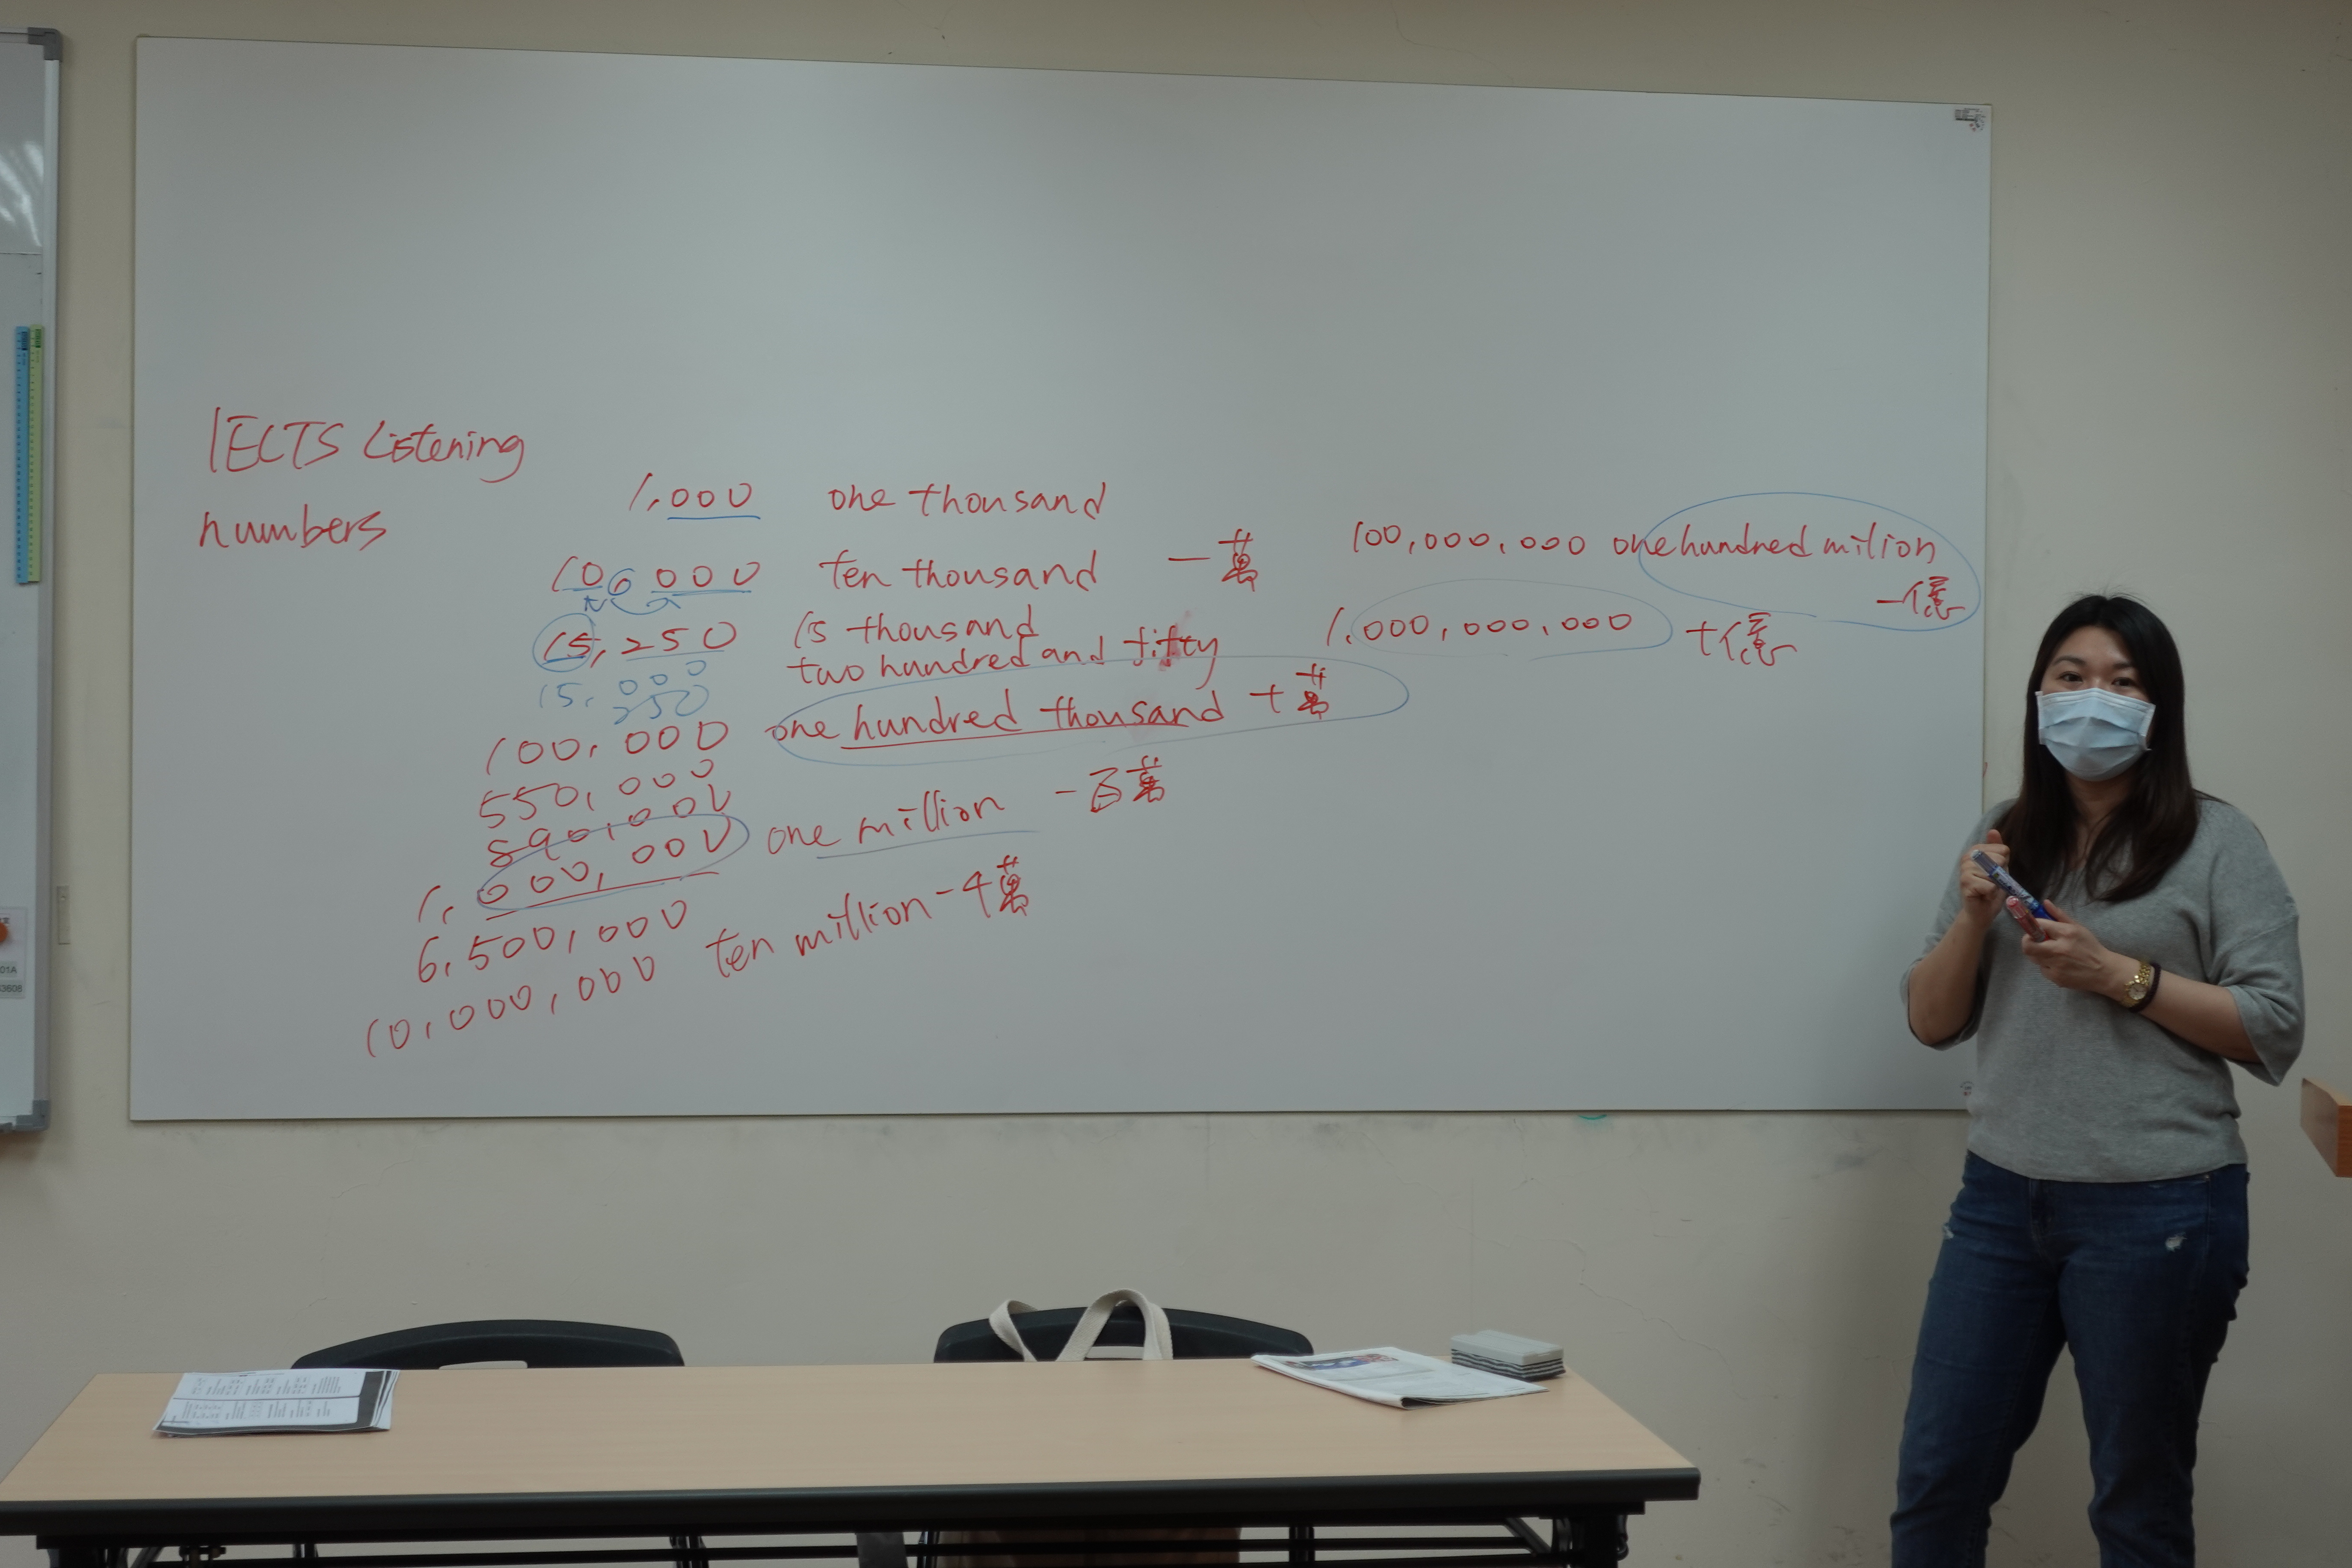 IECTS Listening
numbers
1,000 one thousand
10,000 ten thousand 一萬
15,250 15 thousand
two hundred and fifty
15,000
250
100,000 one hundred thousand 十萬
550,000
890,000
1,000,000 one million 一百萬
6,500,000
10,000,000 ten million 一千萬
100,000,000 one hundred milion
一億
1,000,000,000 十億
01A
3608